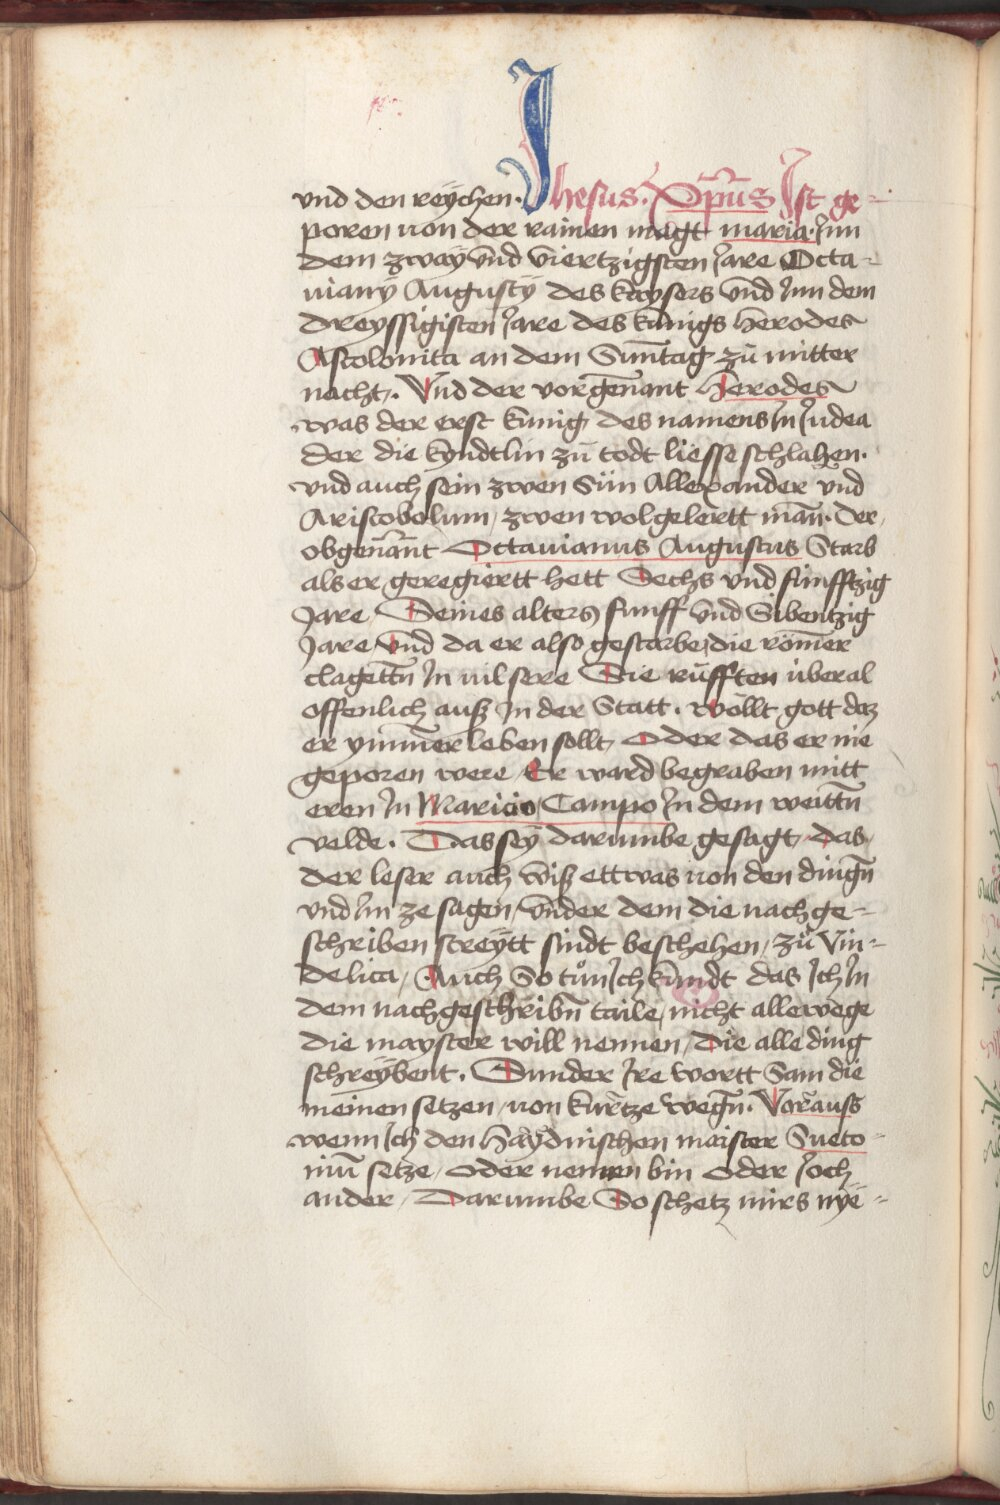 und den reÿchen. Jhesus. Xp̄us Ist ge-
poren von der rainen magt maria. Jnn
dem zwaÿ vnd viertzigsten Jare Octa-
uianÿ Augustÿ des kaysers vnd Jnn dem
dreyssigisten Jare des kunigs herodes
Ascolonita an dem Sunntag zů mitter
nacht. Vnd der vorgenant Herodes
was der erst kunig des namens Jn Judea
der die kyndtlin zů todt liesse schlahen.
vnd auch sein zwen Sün Allexander vnd
Aristobolum, zwen wolgelertt man. der
obgenant Octauianus Augustus Starb
als er geregiertt hett Sechs vnd fünfftzig
Jare Seines alters funff vnd Sibentzig
Jare vnd da er also gestarbe, die römer
clagettn̄ Jn vil sere Sie růfften überal
offenlich auß Jn der Statt. wöllt gott daz
er ymmer leben sollt, Oder das er nie
geporen were Er ward begraben mitt
eren Jn Maricio Campo Jn dem weittn̄
velde. Das seÿ darumbe gesagt, das
der leser auch wiß ettwas von den dingn̄
vnd Jm ze sagen, vnder dem die nachge-
schriben streÿtt sindt beschehen, zů Vin-
delica, Auch So tůn Jch kundt das Jch Jn
dem nachgeschribn̄ taile, nicht allewege
die mayster will nennen, die alle ding
schreÿbent. Sunder Jre wortt Sam die
meinen setzen, von kürtze wegn̄. Vorauß
wenn Jch den Haÿdnischen maister Sueto-
niū setze, oder nennen bin oder Joch
ander, Darumbe So schetz mirs nye-